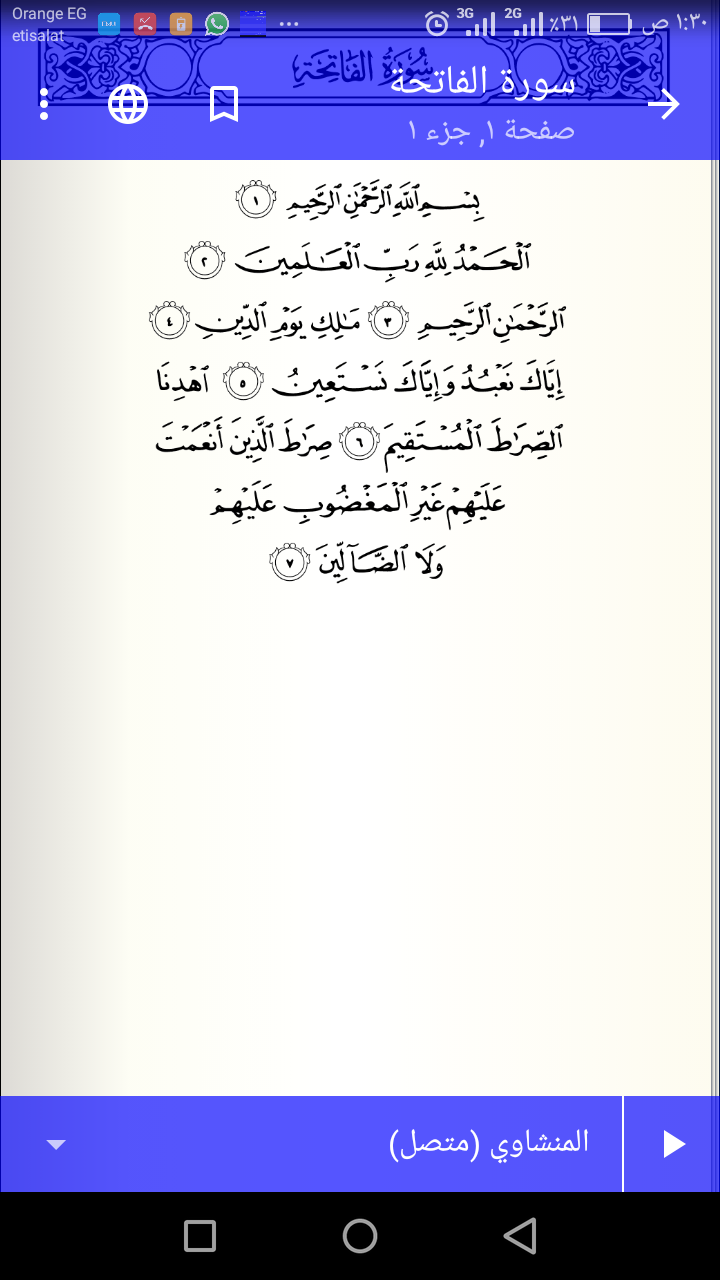 Orange EG
etisalat
3G 2G ٪٣١ ١:٣٠ ص
سُورَةُ الفَاتِحَةِ
سورة الفاتحة
صفحة ١, جزء ١
بِسْمِ ٱللَّهِ ٱلرَّحْمَٰنِ ٱلرَّحِيمِ ١
ٱلْحَمْدُ لِلَّهِ رَبِّ ٱلْعَٰلَمِينَ ٢
ٱلرَّحْمَٰنِ ٱلرَّحِيمِ ٣ مَٰلِكِ يَوْمِ ٱلدِّينِ ٤
إِيَّاكَ نَعْبُدُ وَإِيَّاكَ نَسْتَعِينُ ٥ ٱهْدِنَا
ٱلصِّرَٰطَ ٱلْمُسْتَقِيمَ ٦ صِرَٰطَ ٱلَّذِينَ أَنْعَمْتَ
عَلَيْهِمْ غَيْرِ ٱلْمَغْضُوبِ عَلَيْهِمْ
وَلَا ٱلضَّآلِّينَ ٧
المنشاوي (متصل)